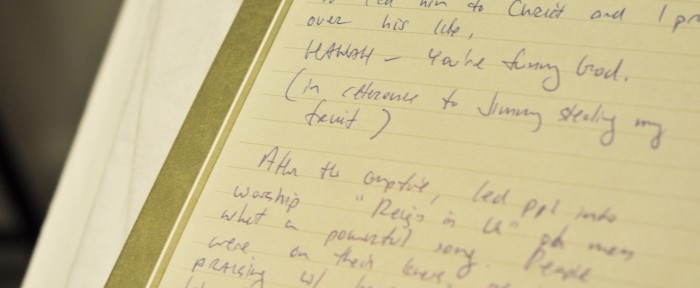 led him to Christ and I pr
over his life,
HAHAH - You're funny God.
(in reference to Jimmy stealing my
fruit)
After the , led ppl into
worship "Reign in Us" oh man
what a powerful song. People
were on their knees,
PRAISING w/